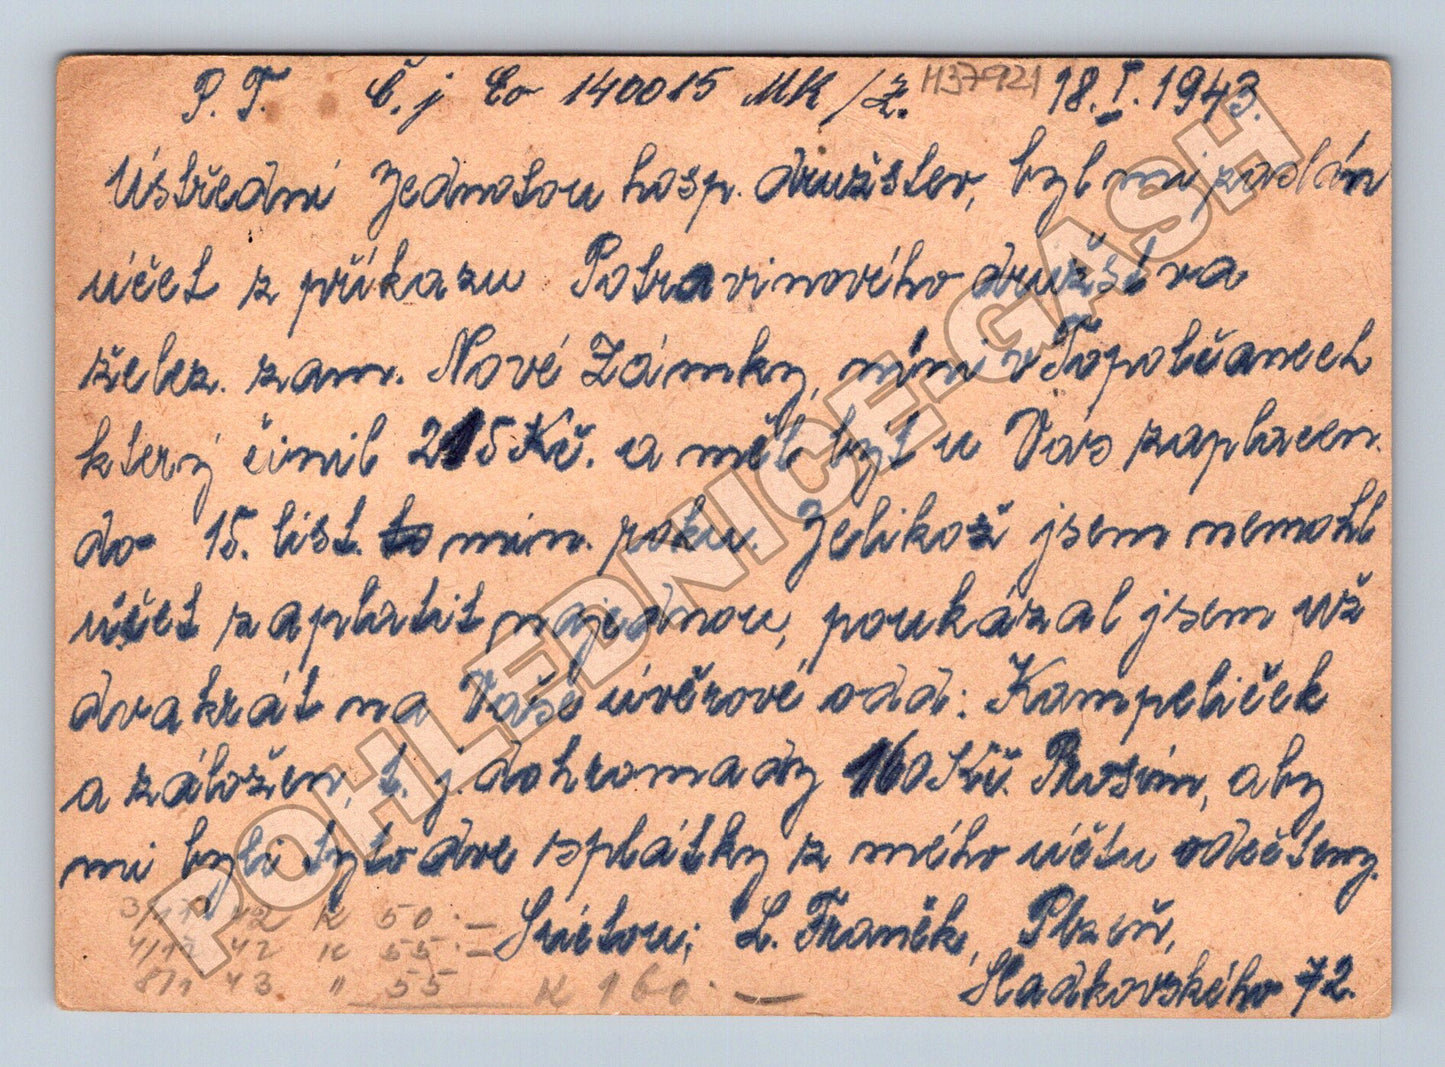 P. T. Č. j Eo 140015 MK/Z. H37921 18. I. 1943.
Ústřední Jednotou hosp. družstev, byl mi zaslán
účet z příkazu Potravinového družstva
želez. zam. Nové Zámky, nyní v Topolčanech
který činil 215 Kč. a měl byt u Vás zaplacen.
do 15. list. min. roku. Jelikož jsem nemohl
účet zaplatit najednou, poukázal jsem už
dvakrát na Vaše úvěrové odd: Kampeliček
a záložen, t. j dohromady 160 Kč. Prosím, aby
mi byli tyto dvě splátky z mého účtu odečteny.
S úctou; L. Franěk, Plzeň,
Sladkovského 72.
3/11 42 K 50.—
4/12 42 K 55.—
8/1 43 " 55
K 160.—
POHLEDNICE-GASH